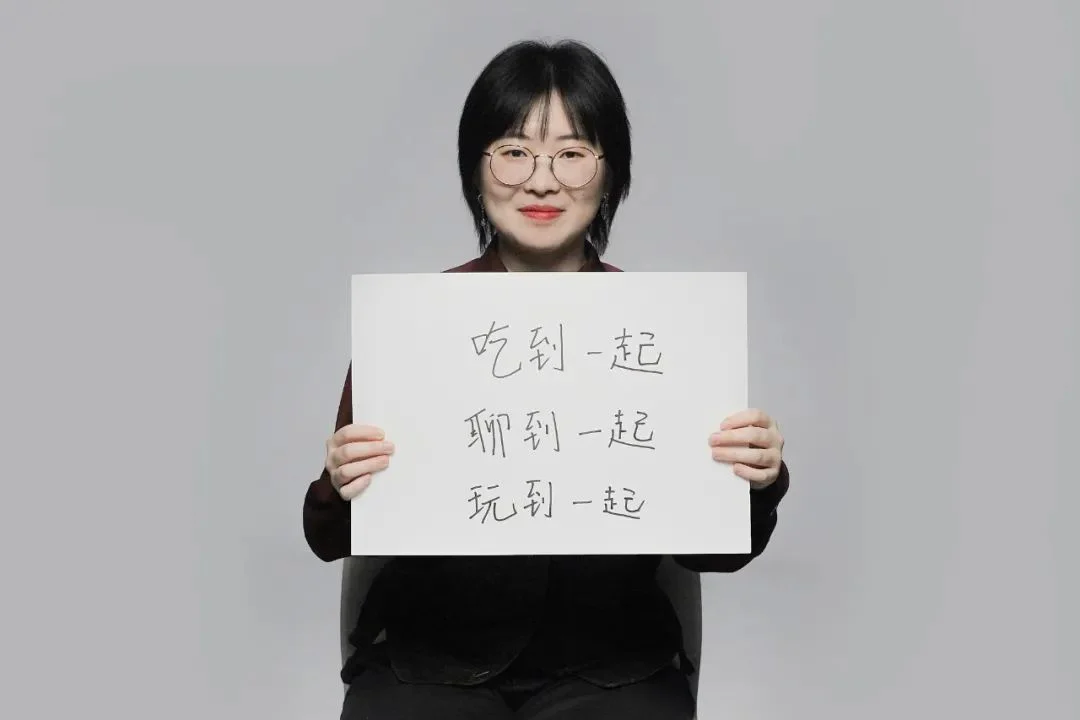 吃到一起
聊到一起
玩到一起